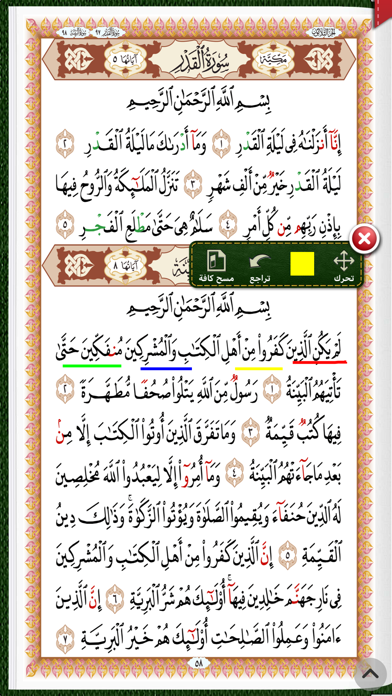 الجزء الثلاثون سورة القدر ٩٧ سورة البينة ٩٨
مكية سورة القدر آياتها ٥
بِسْمِ اللَّهِ الرَّحْمَٰنِ الرَّحِيمِ
إِنَّآ أَنزَلْنَٰهُ فِى لَيْلَةِ الْقَدْرِ ١ وَمَآ أَدْرَىٰكَ مَا لَيْلَةُ الْقَدْرِ ٢
لَيْلَةُ الْقَدْرِ خَيْرٌ مِّنْ أَلْفِ شَهْرٍ ٣ تَنَزَّلُ الْمَلَٰٓئِكَةُ وَالرُّوحُ فِيهَا
بِإِذْنِ رَبِّهِم مِّن كُلِّ أَمْرٍ ٤ سَلَٰمٌ هِىَ حَتَّىٰ مَطْلَعِ الْفَجْرِ ٥
تحرك
تراجع
مسح كافة
آياتها ٨
بِسْمِ اللَّهِ الرَّحْمَٰنِ الرَّحِيمِ
لَمْ يَكُنِ الَّذِينَ كَفَرُوا۟ مِنْ أَهْلِ الْكِتَٰبِ وَالْمُشْرِكِينَ مُنفَكِّينَ حَتَّىٰ
تَأْتِيَهُمُ الْبَيِّنَةُ ١ رَسُولٌ مِّنَ اللَّهِ يَتْلُوا۟ صُحُفًا مُّطَهَّرَةً ٢
فِيهَا كُتُبٌ قَيِّمَةٌ ٣ وَمَا تَفَرَّقَ الَّذِينَ أُوتُوا۟ الْكِتَٰبَ إِلَّا مِنۢ
بَعْدِ مَا جَآءَتْهُمُ الْبَيِّنَةُ ٤ وَمَآ أُمِرُوٓا۟ إِلَّا لِيَعْبُدُوا۟ اللَّهَ مُخْلِصِينَ
لَهُ الدِّينَ حُنَفَآءَ وَيُقِيمُوا۟ الصَّلَوٰةَ وَيُؤْتُوا۟ الزَّكَوٰةَ ۚ وَذَٰلِكَ دِينُ
الْقَيِّمَةِ ٥ إِنَّ الَّذِينَ كَفَرُوا۟ مِنْ أَهْلِ الْكِتَٰبِ وَالْمُشْرِكِينَ
فِى نَارِ جَهَنَّمَ خَٰلِدِينَ فِيهَآ ۚ أُو۟لَٰٓئِكَ هُمْ شَرُّ الْبَرِيَّةِ ٦ إِنَّ الَّذِينَ
ءَامَنُوا۟ وَعَمِلُوا۟ الصَّٰلِحَٰتِ أُو۟لَٰٓئِكَ هُمْ خَيْرُ الْبَرِيَّةِ ٧
٥٨